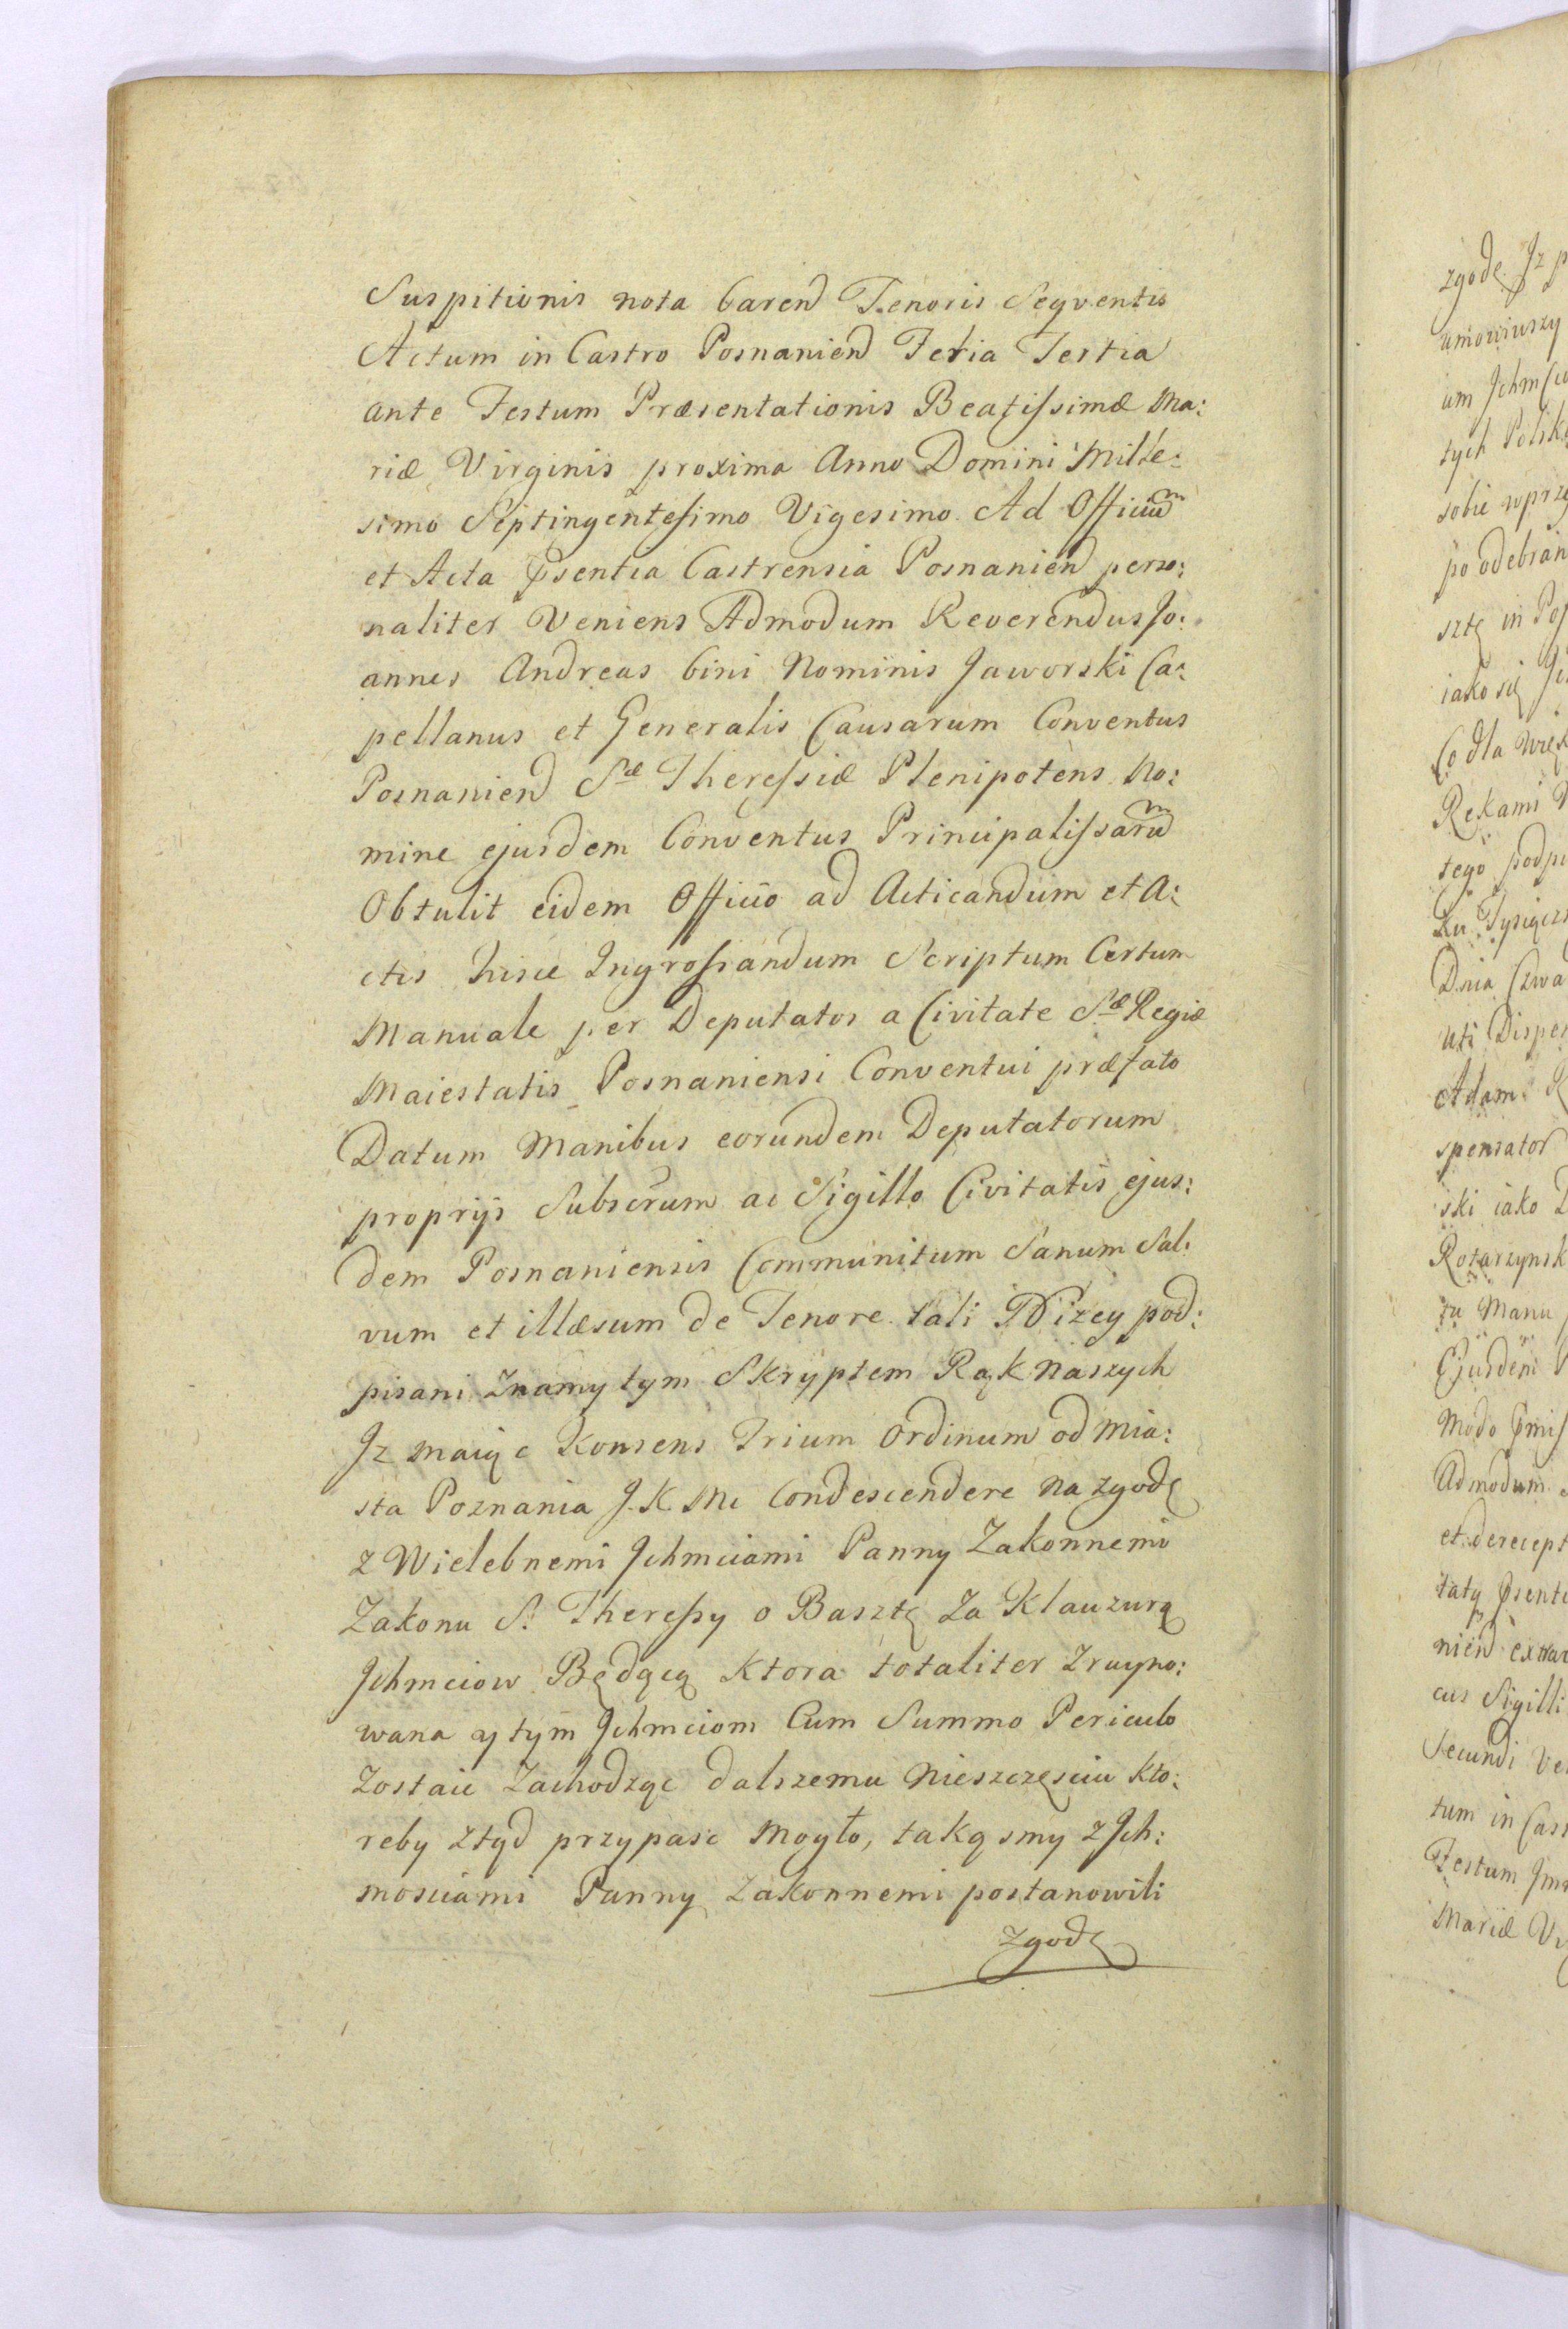 Suspitionis nota Caren̄ Tenoris Seqventis
Actum in Castro Posnanien̄ Feria Tertia
ante Festum Præsentationis Beatissimæ Ma:
riæ Virginis proxima Anno Domini Mille:
simo Septingentesimo Vigesimo. Ad Officium
et Acta p̄sentia Castrensia Posnanien̄ perso:
naliter Veniens Admodum Reverendus Jo:
annes Andreas bini Nominis Jaworski Ca:
pellanus et Generalis Causarum Conventus
Posnanien̄ Sæ Theressiæ Plenipotens No:
mine ejusdem Conventus Principalissarum
Obtulit eidem Officio ad Acticandum et A:
ctis hisce Ingrossandum Scriptum Certum
Manuale per Deputatos a Civitate Sæ Regiæ
Maiestatis Posnaniensi Conventui præfato
Datum Manibus eorundem Deputatorum
proprijs Subscrum ac Sigillo Civitatis ejus:
dem Posnaniensis Communitum Sanum Sal:
vum et illæsum de Tenore tali Nizey pod:
pisani Znamy tym Skryptem Rąk Naszych
Jz maiąc Konsens Trium Ordinum od Mia:
sta Poznania J.K Mci Condescendere na zgodę
z Wielebnemi Jchmciami Panny Zakonnemi
Zakonu S. Theressy o Basztę Za Klauzurą
Jchmciow Będącą Ktora totaliter Zruyno:
wana y tym Jchmciom Cum Summo Periculo
Zostaie Zachodząc dalszemu Nieszczęsciu kto:
reby ztąd przypasc Mogło, taką smy z Jch:
mosciami Panny Zakonnemi postanowili
zgodę
zgodę Jz
umowiwszy
tych
po odebran
sztę in
iako się
Co dla
Rekami
tego
Dnia
Uti
Adam
spensator
ski iako
tu Manu
Ejusdem
Modo
Admodum
cus Sigilli
Secundi
tum in
Festum
Mariæ